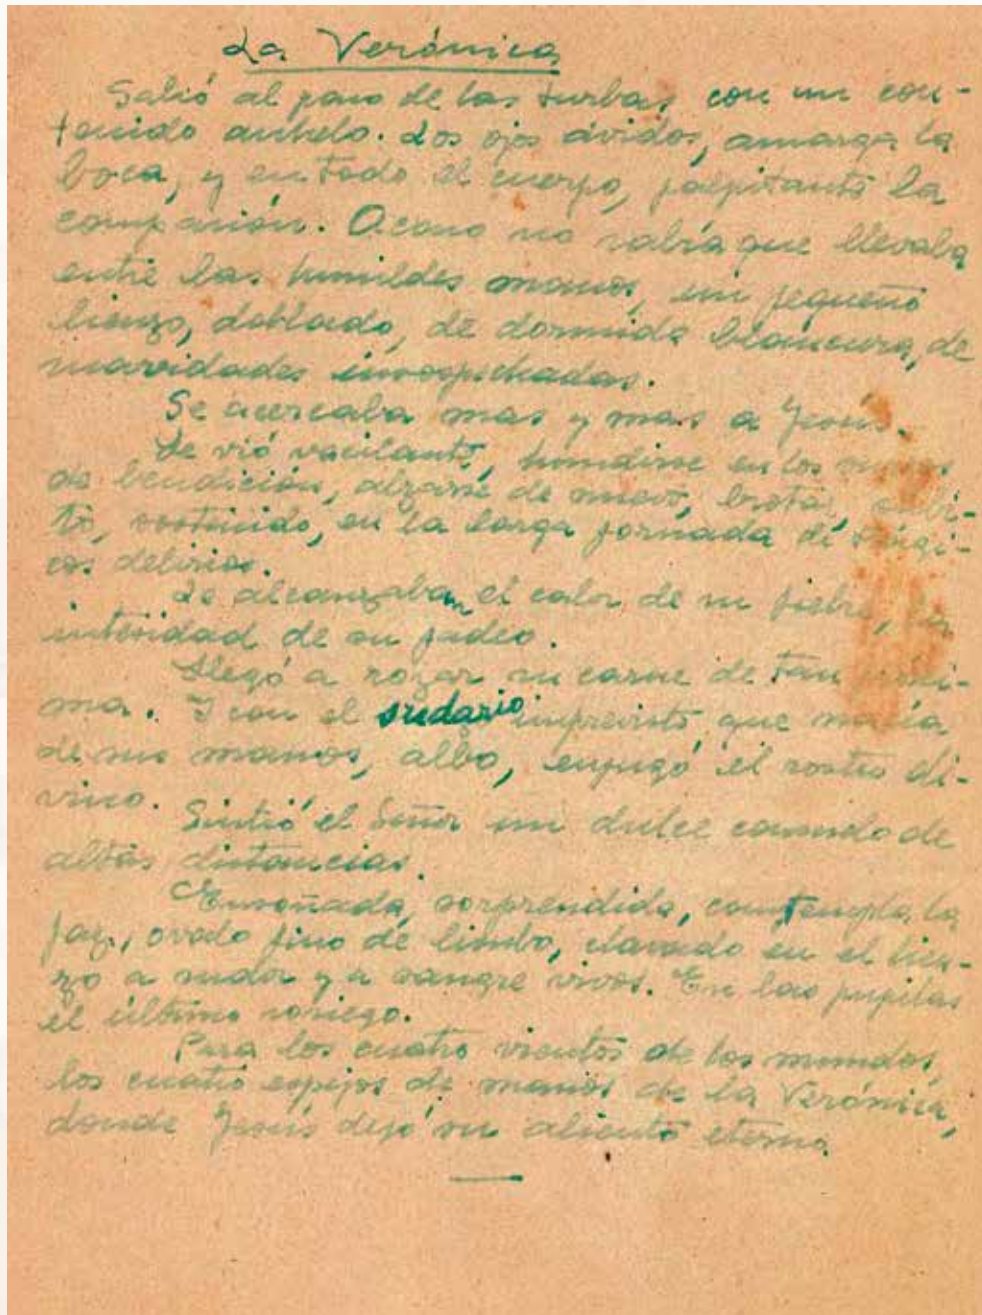 La Verónica
Salió al paso de las turbas con un con-
tenido anhelo. Los ojos ávidos, amarga la
boca, y en todo el cuerpo, palpitante la
compasión. Acaso no sabía que llevaba
entre las humildes manos, un pequeño
lienzo, doblado, de dormida blancura, de
suavidades insospechadas.
Se acercaba mas y mas a Jesús.
Le vió vacilante, hundirse en los
de bendición, alzarse de nuevo, brotar, súbi-
to, sostenido, en la larga jornada de trági-
cos delirios.
Le alcanzaban el calor de su fiebre, la
intensidad de su jadeo.
Llegó a rozar su carne de tan próxi-
ma. I con el sudario imprevisto que nacía
de sus manos, albo, enjugó el rostro di-
vino.
Sintió el Señor un dulce consuelo de
altas distancias.
Ensoñada, sorprendida, contempla la
faz, ovado fino de limbo, clavado en el lien-
zo a sudor y a sangre vivos. En las pupilas
el último sosiego.
Para los cuatro vientos de los mundos,
los cuatro espejos de manos de la Verónica,
donde Jesús dejó su aliento eterno.